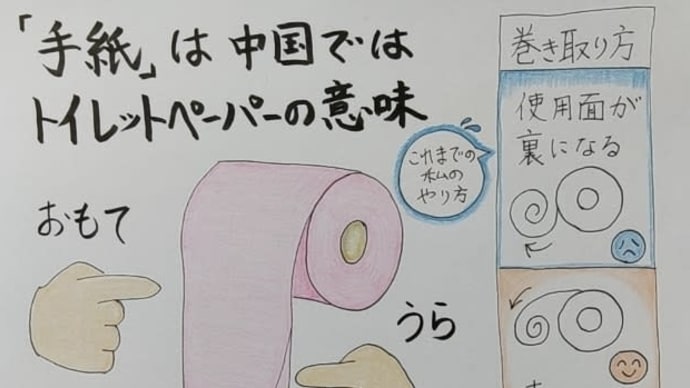 「手紙」は中国では
トイレットペーパーの意味
おもて
うら
これまでの
私の
やり方
巻き取り方
使用面が
裏になる